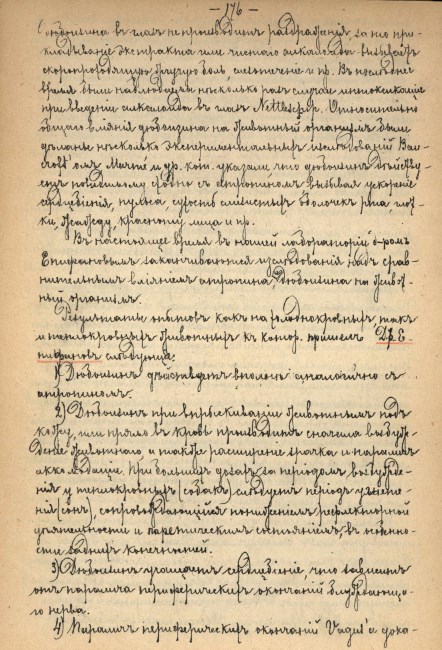 — 176 —
Дюбоизина въ глазъ не производитъ раздраженія, за то при-
кладываніе экстракта или чистаго алкалоида вызываетъ
скоропроходящую жгучую боль, слезотеченіе и пр. Въ последнее
время были наблюдаемы несколько разъ случаи интоксикаціи
при введеніи алкалоида въ глазъ Nettleship. Относительно
общаго вліянія дюбоизина на животный организмъ были
сделаны несколько экспериментальныхъ изследованій
омъ и др. кот. указали, что дюбоизинъ действу-
етъ повидимому сходно съ атропиномъ вызывая ускореніе
сердцебіенія, пульса, сухость слизистыхъ оболочекъ рта, глот-
ки, жажду, красноту лица и пр.
Въ настоящее время въ нашей лабораторіи д-ромъ
Епифановымъ заканчиваются изследованія надъ срав-
нительнымъ вліяніемъ атропина и Дюбоизина на живот-
ный организмъ.
Результаты опытовъ какъ на холоднокровныхъ такъ
и теплокровныхъ животныхъ къ котор. пришелъ Др. Е-
пифановъ следующіе:
1) Дюбоизинъ действуетъ вполне аналогично съ
атропиномъ.
2) Дюбоизинъ при впрыскиваніи животнымъ подъ
кожу, или прямо въ кровь производитъ сначала возбуж-
деніе животнаго, а также расширеніе зрачка и параличъ
аккомодаціи. При большихъ дозахъ за періодомъ возбужде-
нія у теплокровныхъ (собакъ) следуетъ періодъ угнете-
нія (сонъ), сопровождающійся пониженіемъ рефлекторной
деятельности и паретическимъ состояніемъ, въ особенно-
сти заднихъ конечностей.
3) Дюбоизинъ учащаетъ сердцебіеніе, что зависитъ
отъ паралича периферическихъ окончаній блуждающа-
го нерва.
4) Параличъ периферическихъ окончаній Vagus'а дока-